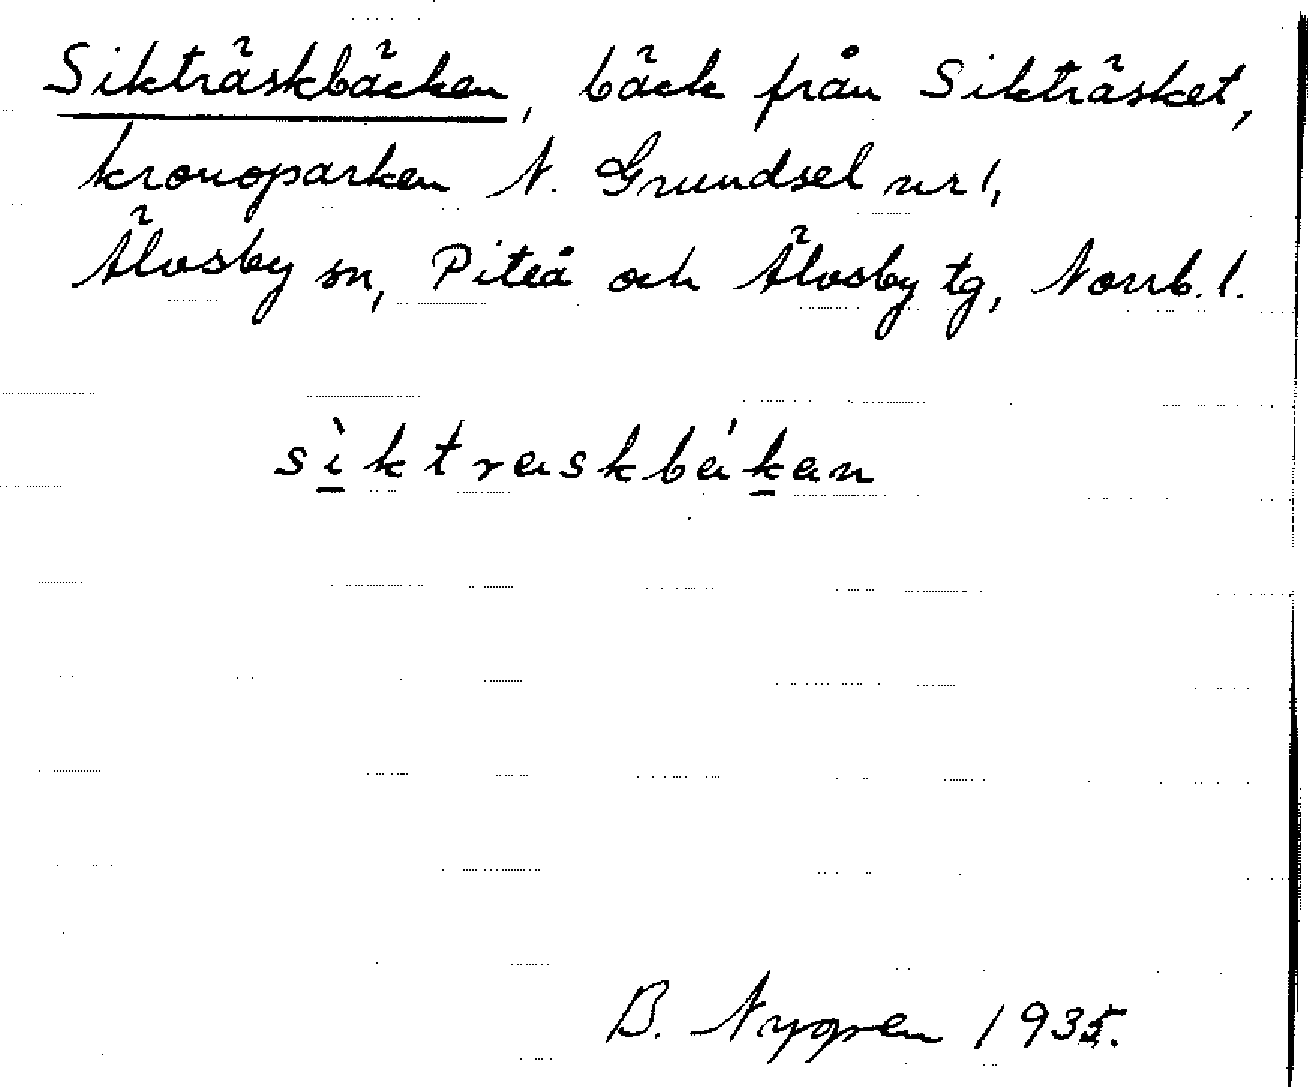 Sikträskbäcken, bäck från Sikträsket,
kronoparken N. Grundsel nr 1,
Älvsby sn, Piteå och Älvsby tg, Norrb. l.
sìktraskbák̲an
B. Nygren 1935.